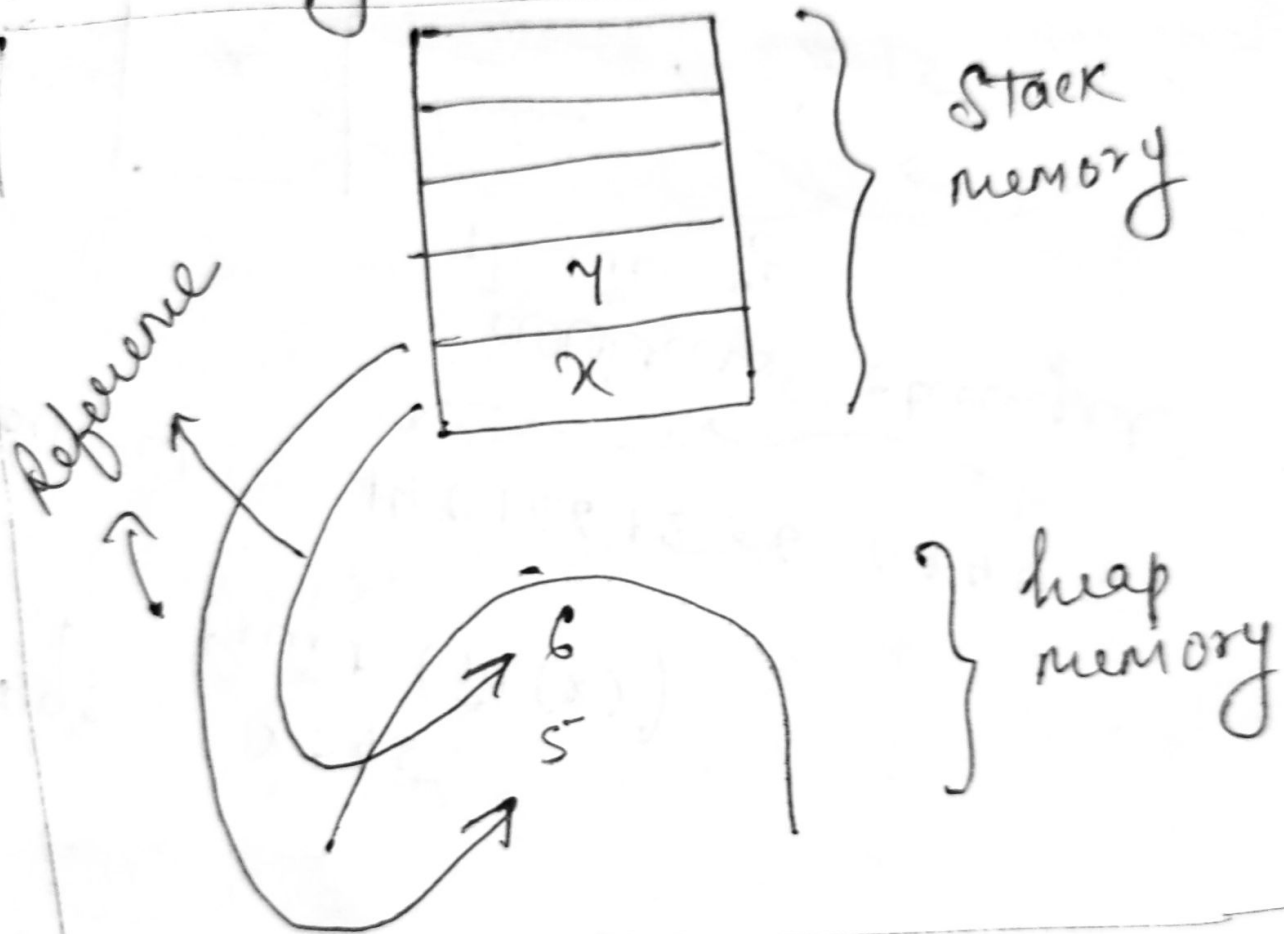 Stack
memory
y
x
Reference
6
5
heap
memory